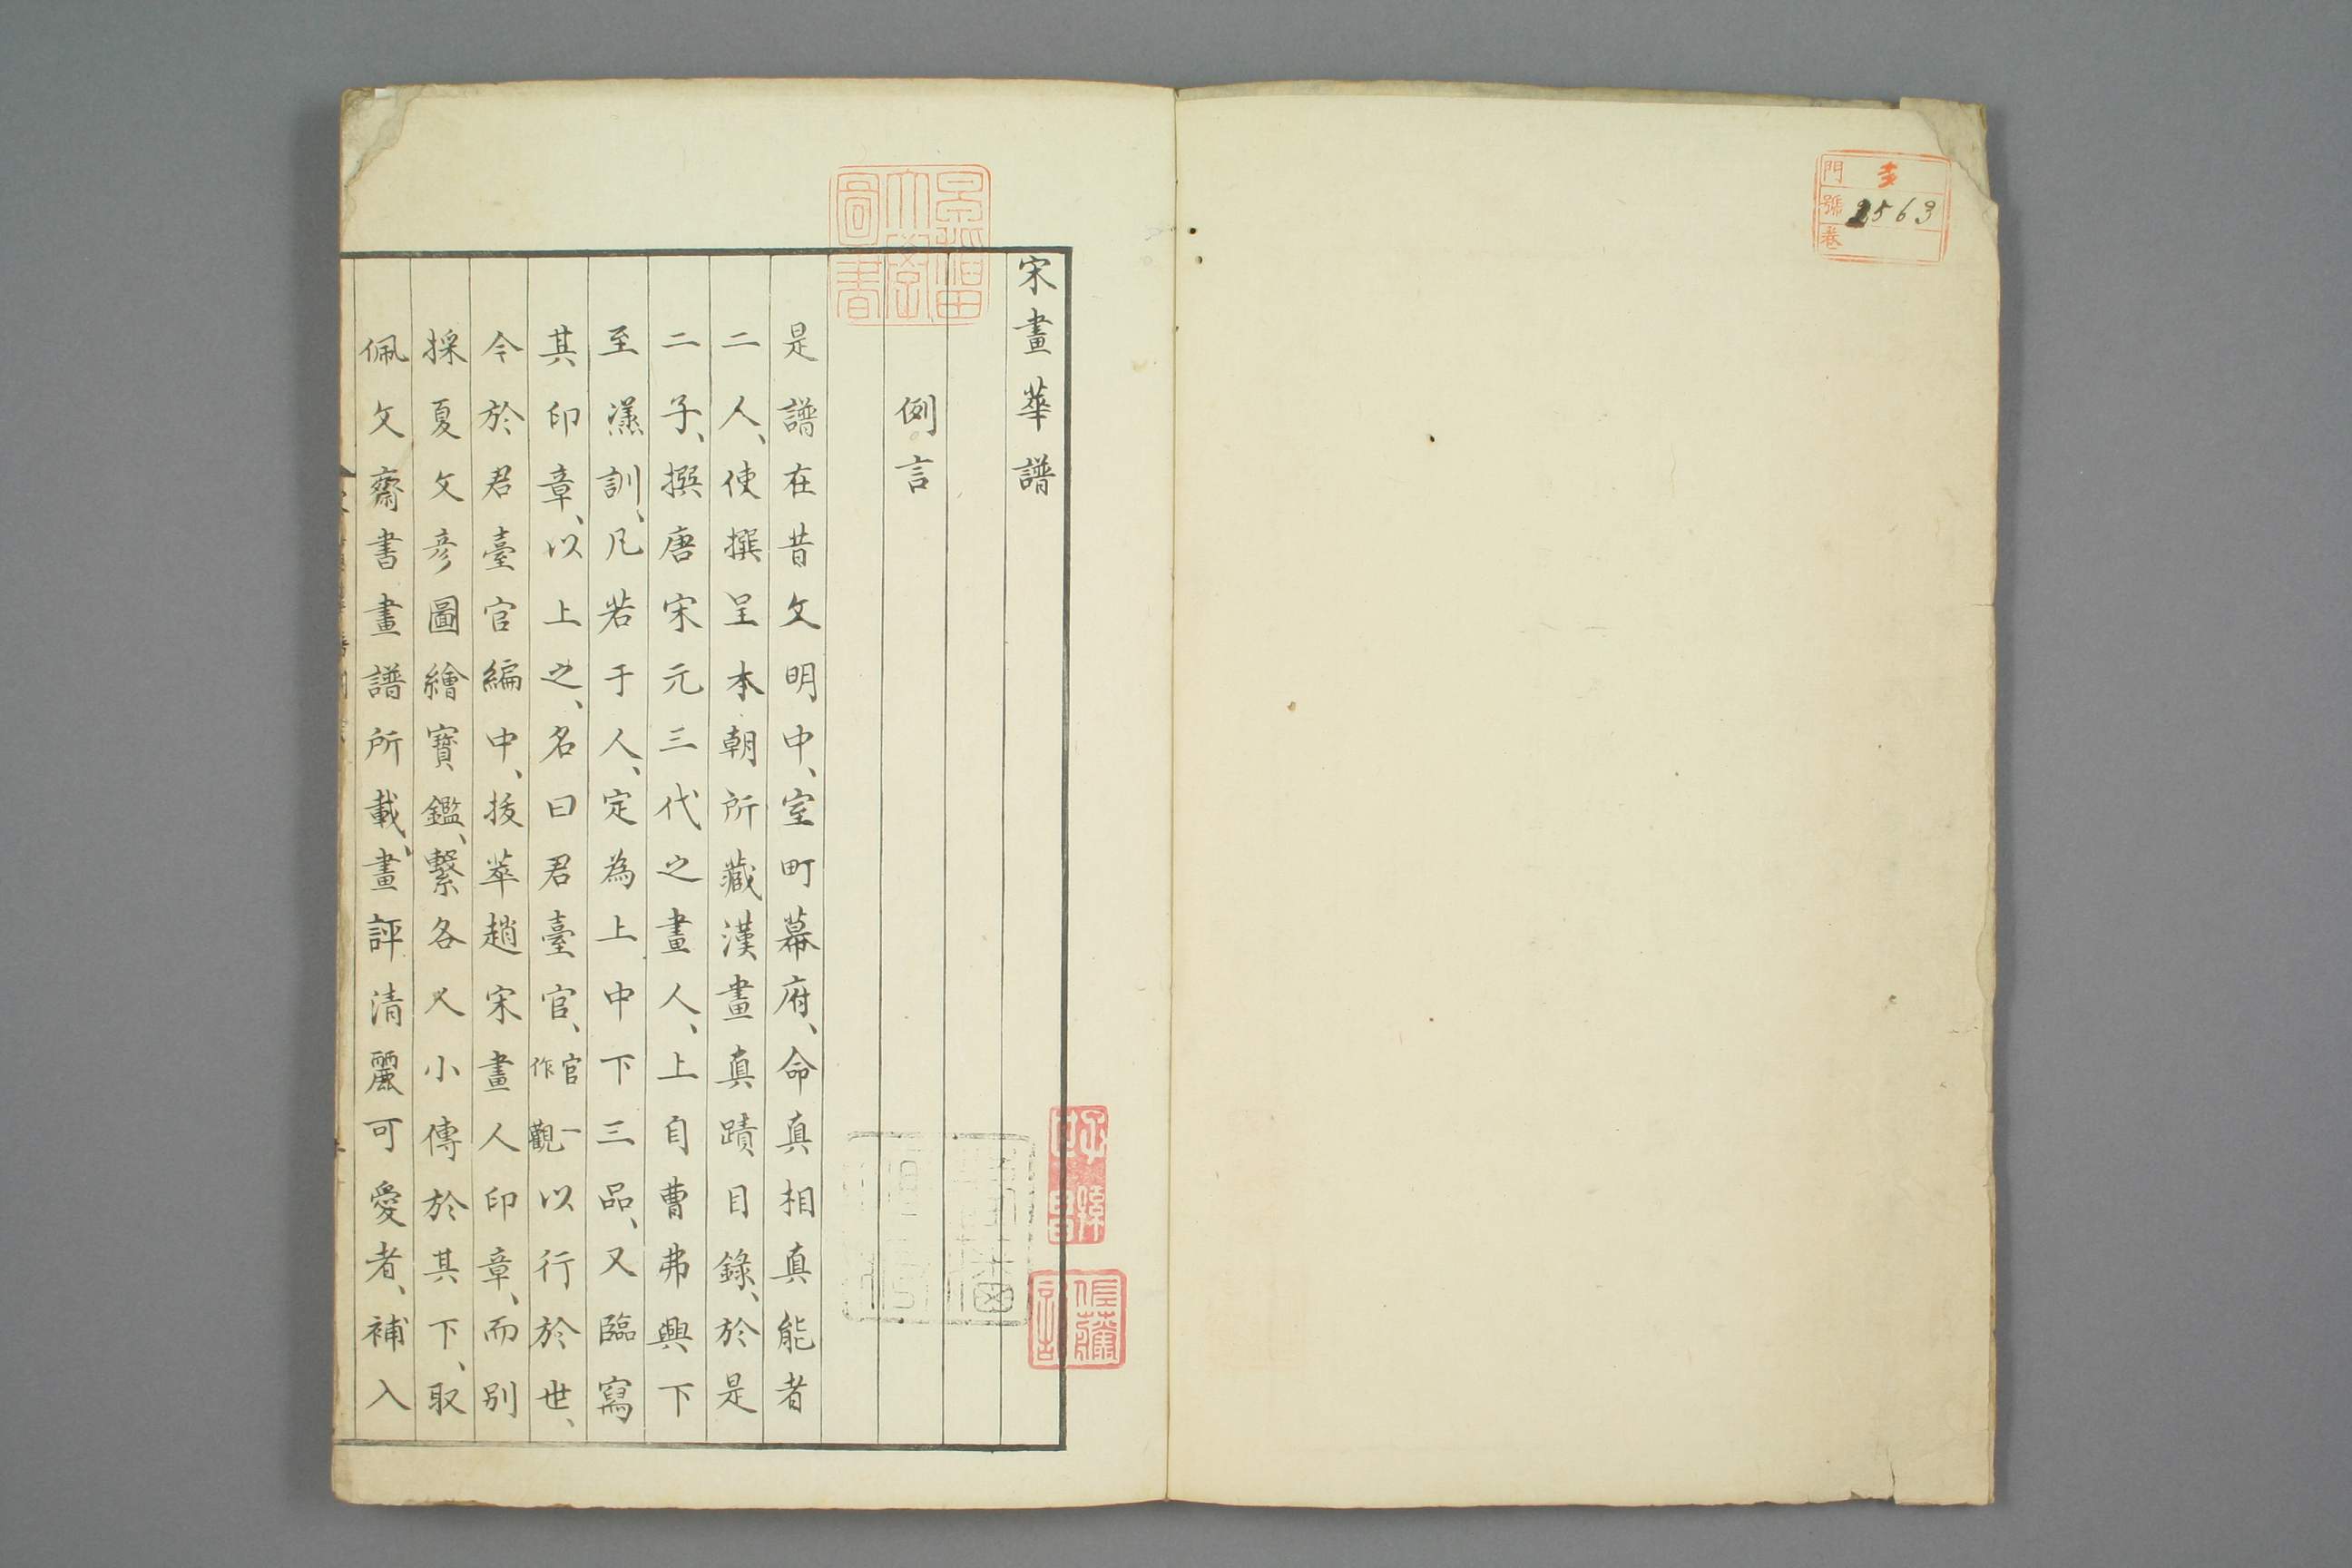 門 多
號 2563
卷
早稲田
大學
圖書
宋畫華譜
例言
是譜在昔文明中、室町幕府、命真相真能者
二人、使撰呈本朝所藏漢畫真蹟目錄、於是
二子、撰唐宋元三代之畫人、上自曹弗興下
至漾訓、凡若于人、定為上中下三品、又臨寫
其印章、以上之、名曰君臺官、官一作觀以行於世、
今於君臺官編中、拔萃趙宋畫人印章、而別
採夏文彦圖繪寶鑑、繫各人小傳於其下、取
佩文齋書畫譜所載、畫評清麗可愛者、補入